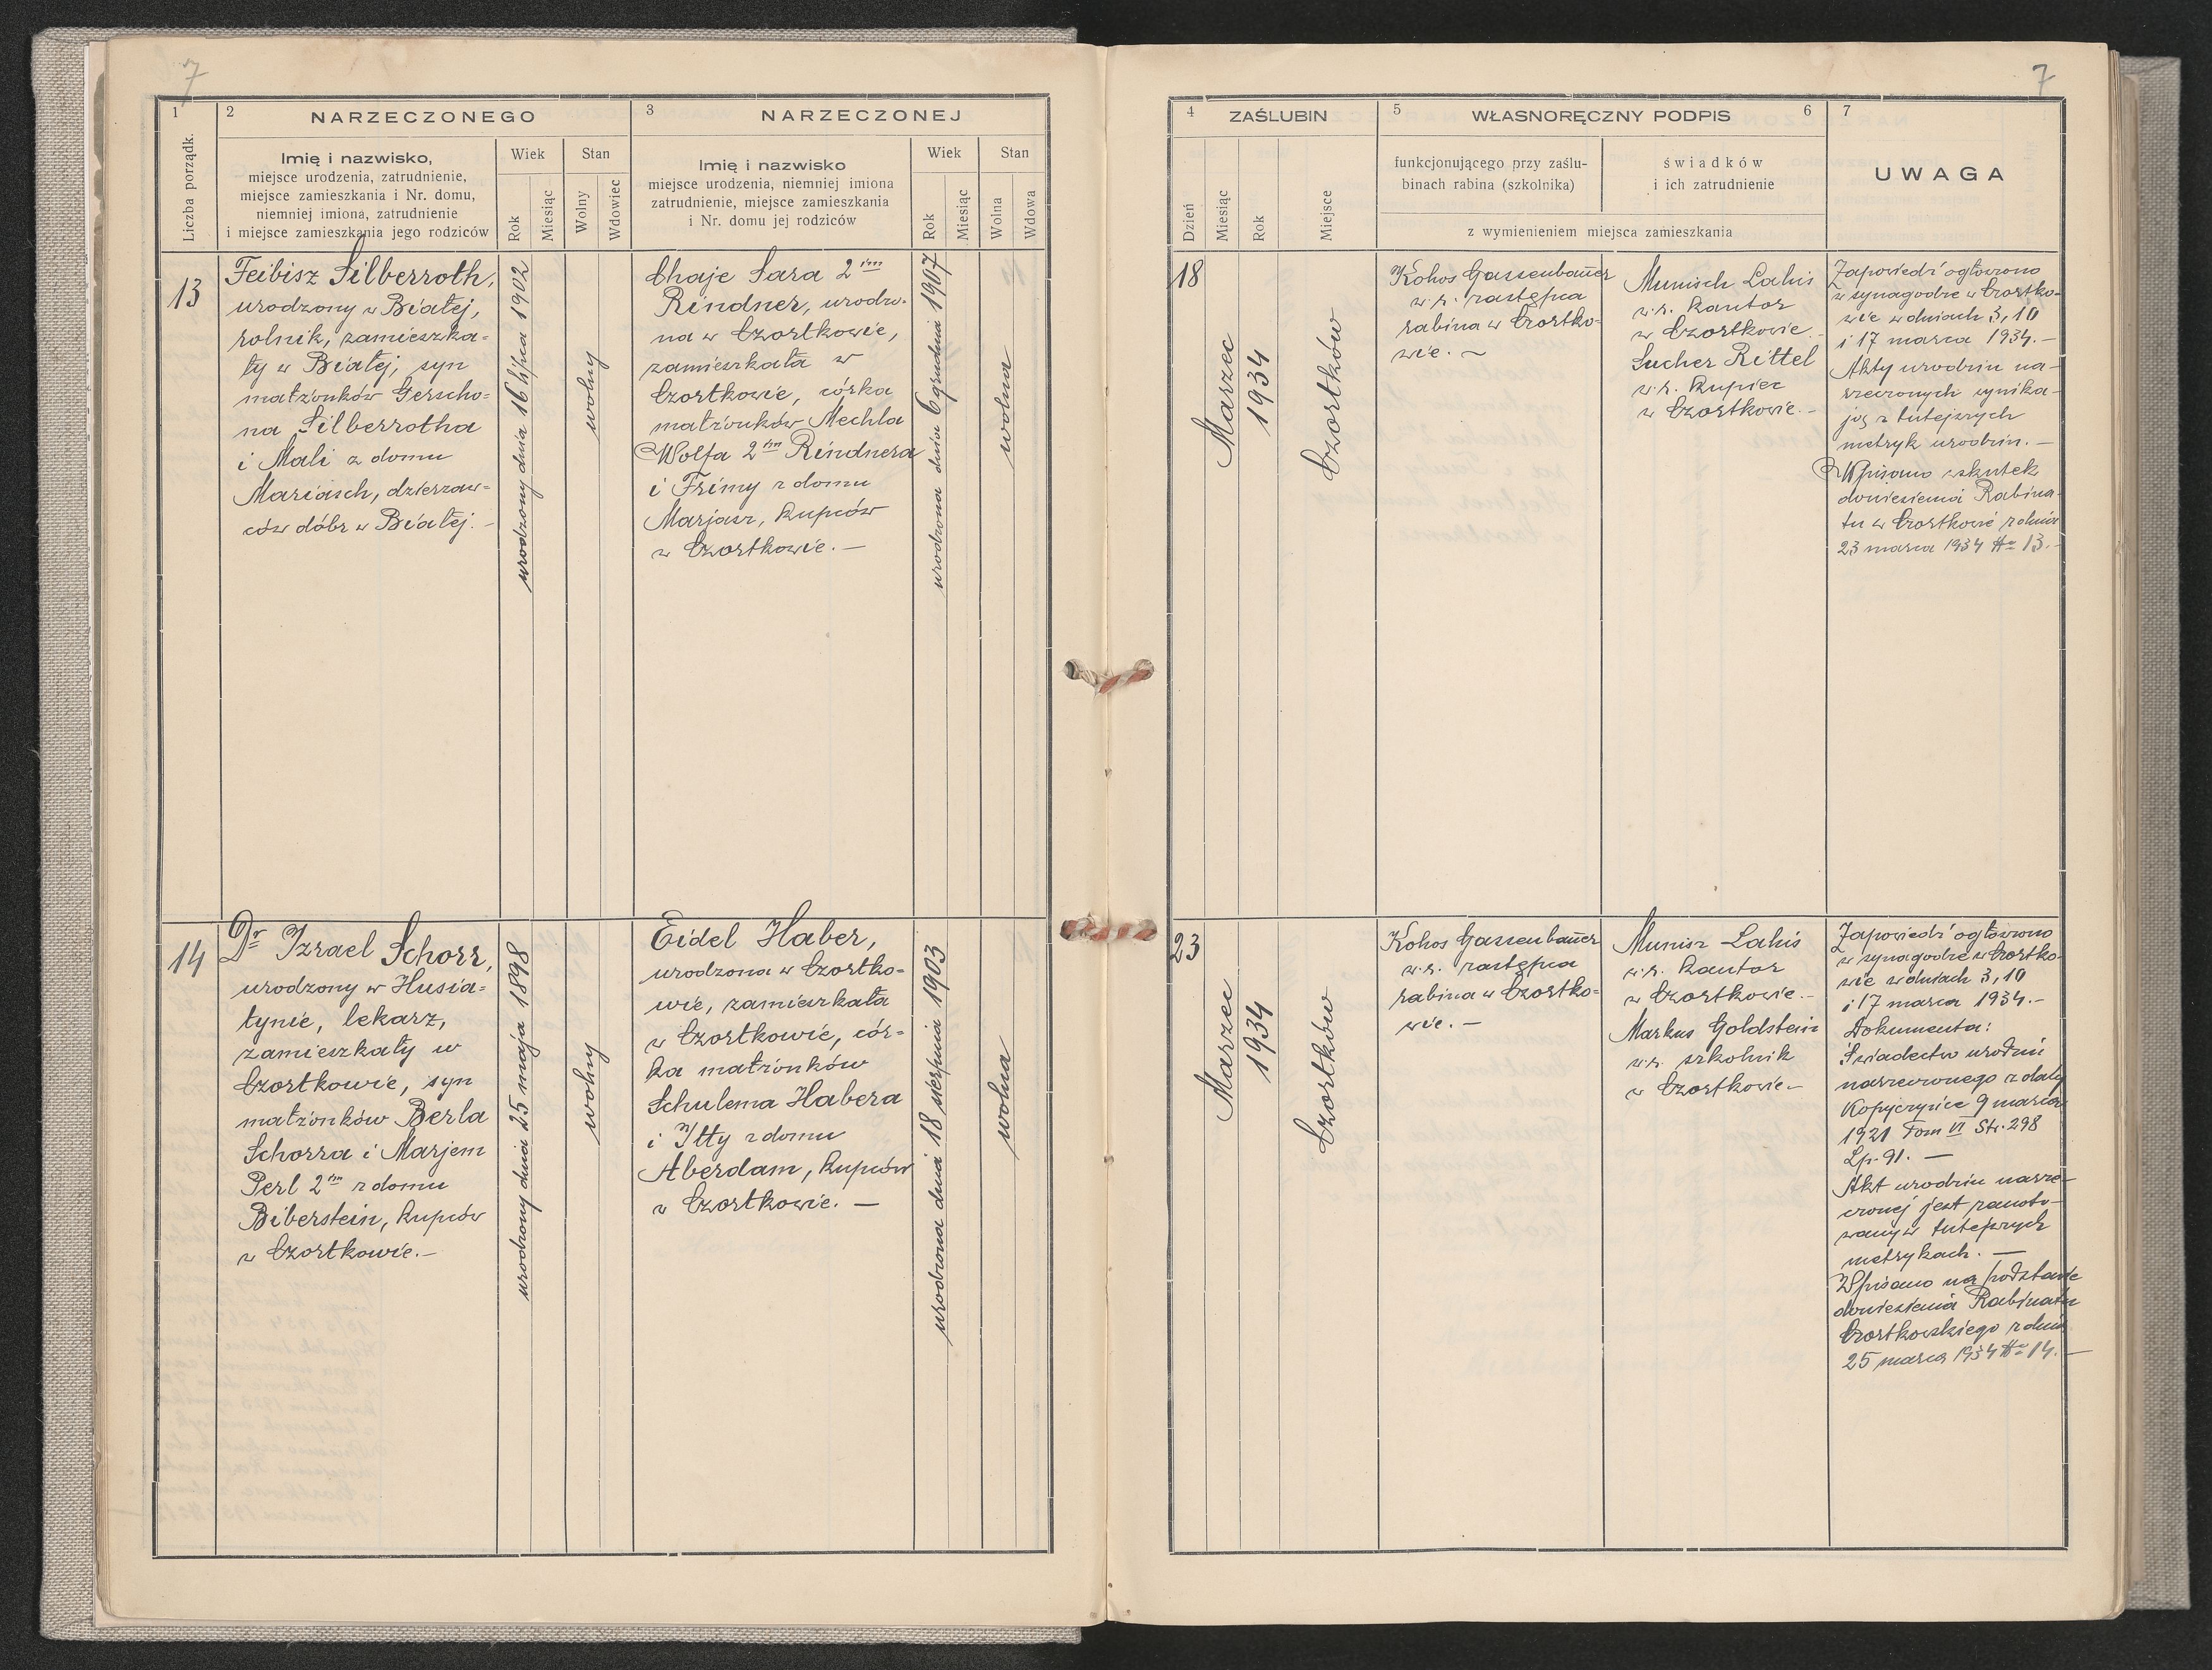 7
7
1
Liczba porządk.
2
NARZECZONEGO
Imię i nazwisko,
miejsce urodzenia, zatrudnienie,
miejsce zamieszkania i Nr. domu,
niemniej imiona, zatrudnienie
i miejsce zamieszkania jego rodziców
Wiek
Rok
Miesiąc
Stan
Wolny
Wdowiec
3
NARZECZONEJ
Imię i nazwisko
miejsce urodzenia, niemniej imiona
zatrudnienie, miejsce zamieszkania
i Nr. domu jej rodziców
Wiek
Rok
Miesiąc
Stan
Wolna
Wdowa
4
ZAŚLUBIN
Dzień
Miesiąc
Rok
Miejsce
5
WŁASNORĘCZNY PODPIS
6
funkcjonującego przy zaślu-
binach rabina (szkolnika)
świadków
i ich zatrudnienie
z wymienieniem miejsca zamieszkania
7
UWAGA
13
Feibisz Silberroth,
urodzony w Białej,
rolnik, zamieszka=
ły w Białej, syn
małżonków Gerscho=
na Silberrotha
i Mali z domu
Mariasch, dzierżaw=
ców dóbr w Białej. -
urodzony dnia 16 lipca 1902
wolny
Chaje Sara 2im
Rindner, urodzo-
na w Czortkowie,
zamieszkała w
Czortkowie, córka
małżonków Mechla
Wolfa 2im Rindnera
i Frimy z domu
Marjasz, kupców
w Czortkowie. —
urodzona dnia 6 grudnia 1907
wolna
18
Marzec
1934
Czortków
Kohos Gassenbauer
w.r. zastępca
rabina w Czortko=
wie. ~
Munisch Lahis
w.r. kantor
w Czortkowie.-
Sucher Rittel
w.r. kupiec
w Czortkowie.-
Zapowiedzi ogłoszono
w synagodze w Czortko-
wie w dniach 3, 10
i 17 marca 1934.-
Akty urodzin na-
rzeczonych wynika-
ją z tutejszych
metryk urodzin. -
Wpisano wskutek
doniesienia Rabina-
tu w Czortkowie z dnia
23 marca 1934 No 13.-
14
Dr Izrael Schorr,
urodzony w Husia=
tynie, lekarz,
zamieszkały w
Czortkowie, syn
małżonków Berla
Schorra i Marjem
Perl 2im z domu
Biberstein, kupców
w Czortkowie.-
urodzony dnia 25 maja 1898
wolny
Eidel Haber,
urodzona w Czortko=
wie, zamieszkała
w Czortkowie, cór=
ka małżonków
Schulema Habera
i Itty z domu
Aberdam, kupców
w Czortkowie. —
urodzona dnia 18 sierpnia 1903
wolna
23
Marzec
1934
Czortków
Kohos Gassenbauer
w.r. zastępca
rabina w Czortko=
wie. -
Munisz Lahis
w.r. kantor
w Czortkowie.-
Markus Goldstein
w.r. szkolnik
w Czortkowie.-
Zapowiedzi ogłoszono
w synagodze w Czortko-
wie w dniach 3, 10
i 17 marca 1934.-
Dokumenta:
Świadectwo urodzin
narzeczonego z daty
Kopyczyńce 9 marca
1921 Tom VI Str. 298
Lp. 91. —
Akt urodzin narze-
czonej jest zanoto-
wany w tutejszych
metrykach. —
Wpisano na podstawie
doniesienia Rabinatu
Czortkowskiego z dnia
25 marca 1934 No 14.-